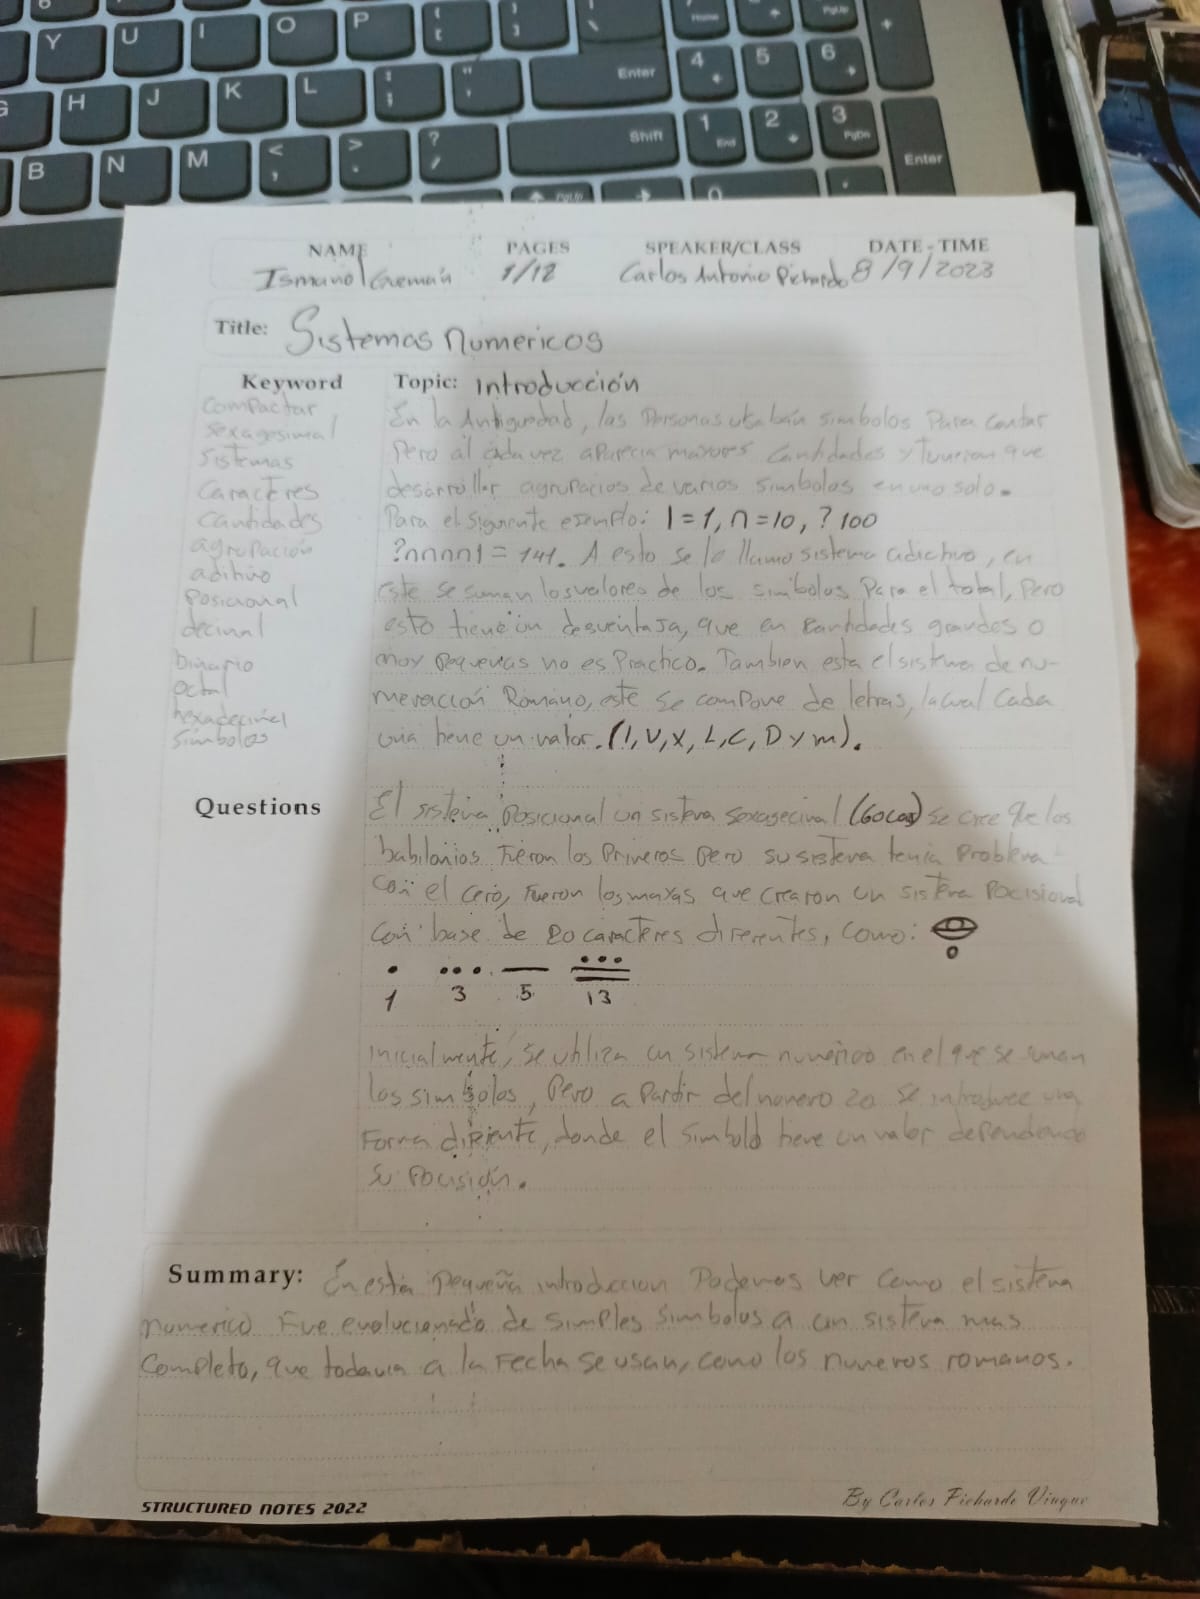 Y U I O P { [ } ] | \ 7 Home PgUp +
G H J K L : ; " ' Enter 4 5 6
B N M < , > . ? / Shift 1 End 2 3 PgDn Enter
PgUp 0 .
NAME PAGES SPEAKER/CLASS DATE - TIME
Ismanol Gremán 1/12 Carlos Antonio Pichardo 8/9/2023
Title: Sistemas numericos
Keyword
Compactar
Sexagesimal
Sistemas
Caracteres
Cantidades
agrupación
aditivo
Posicional
decimal
binario
octal
hexadecimal
símbolos
Topic: Introducción
En la Antiguedad, las Personas utilizaban simbolos Para contar
Pero al cada vez aparecia mayores Cantidades y tuvieron que
desarrollar agrupacios de varios simbolos en uno solo.
Para el siguiente ejemplo: I=1, ∩=10, ? 100
?∩∩∩∩I = 141. A esto se le llamo sistema adictivo, en
este se suman los valores de los simbolos Para el total, Pero
esto tiene un desventaja, que en Cantidades grandes o
muy Pequeñas no es Practico. Tambien esta el sistema de nu-
meración Romano, este se compone de letras, la cual cada
una tiene un valor. (I, V, X, L, C, D y m).
Questions
El sistema Posicional un sistema sexagecimal (60cas) se cree que los
babilonios Fueron los Primeros Pero su sistema tenia Problema
con el cero, Fueron los mayas que crearon un sistema Pocisional
con base de 20 caracteres diferentes, como:
0
1 3 5 13
Inicialmente, se utiliza un sistema numerico en el que se suman
los simbolos, Pero a Partir del numero 20 se introduce una
Forma difiente, donde el simbolo tiene un valor dependiendo
su Pocisión.
Summary: En esta Pequeña introduccion Podemos ver Como el sistema
numerico Fue evolucionado de simples simbolos a un sistema mas
Completo, que todavia a la Fecha se usan, como los numeros romanos.
STRUCTURED NOTES 2022 By Carlos Pichardo Viuque